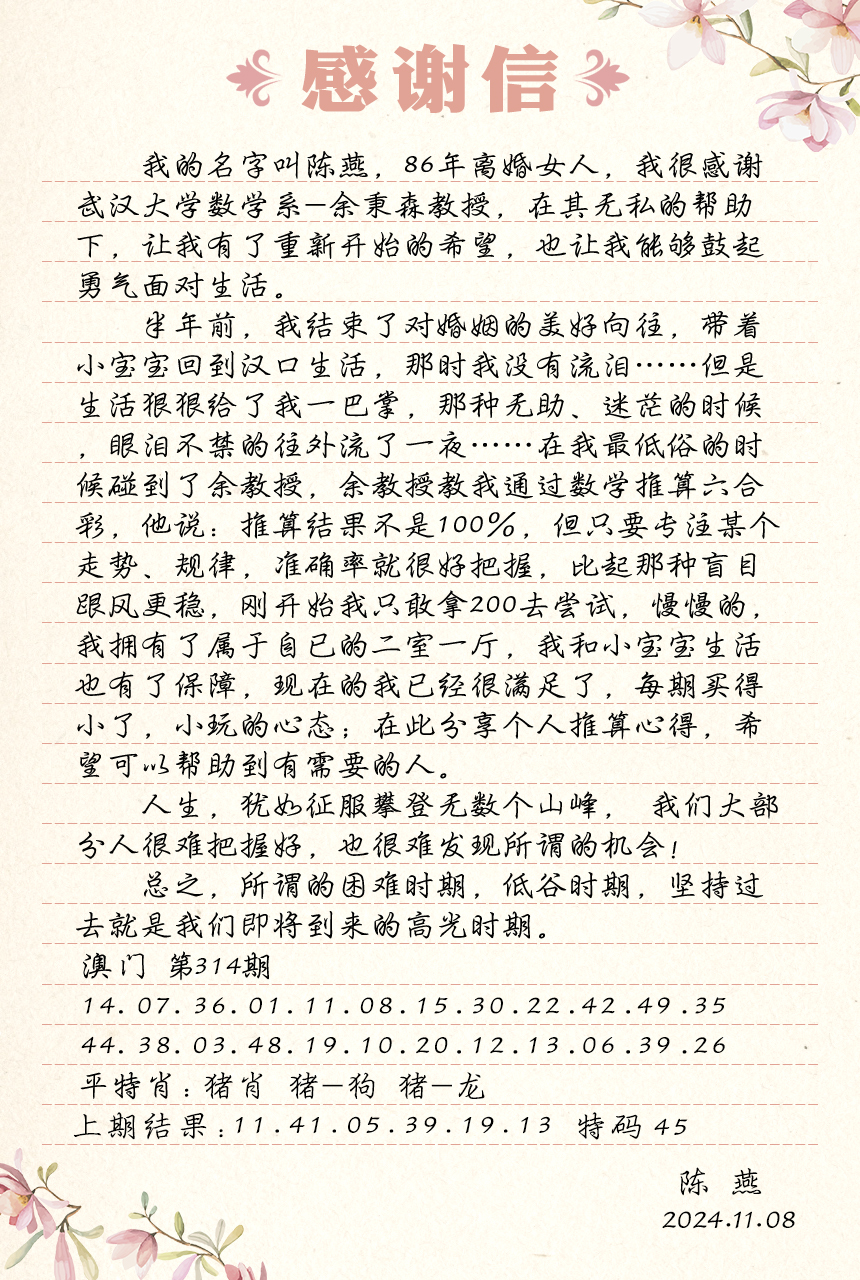 感谢信
我的名字叫陈燕，86年离婚女人，我很感谢
武汉大学数学系—余秉森教授，在其无私的帮助
下，让我有了重新开始的希望，也让我能够鼓起
勇气面对生活。
半年前，我结束了对婚姻的美好向往，带着
小宝宝回到汉口生活，那时我没有流泪……但是
生活狠狠给了我一巴掌，那种无助、迷茫的时候
，眼泪不禁的往外流了一夜……在我最低俗的时
候碰到了余教授，余教授教我通过数学推算六合
彩，他说：推算结果不是100%，但只要专注某个
走势、规律，准确率就很好把握，比起那种盲目
跟风更稳，刚开始我只敢拿200去尝试，慢慢的，
我拥有了属于自已的二室一厅，我和小宝宝生活
也有了保障，现在的我已经很满足了，每期买得
小了，小玩的心态；在此分享个人推算心得，希
望可以帮助到有需要的人。
人生，犹如征服攀登无数个山峰， 我们大部
分人很难把握好，也很难发现所谓的机会！
总之，所谓的困难时期，低谷时期，坚持过
去就是我们即将到来的高光时期。
澳门 第314期
14.07.36.01.11.08.15.30.22.42.49.35
44.38.03.48.19.10.20.12.13.06.39.26
平特肖：猪肖 猪—狗 猪—龙
上期结果：11.41.05.39.19.13 特码 45
陈 燕
2024.11.08